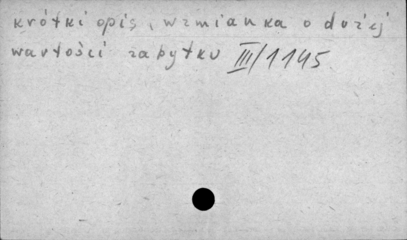 krótki opis, wzmianka o dużej
wartości zabytku III/1145